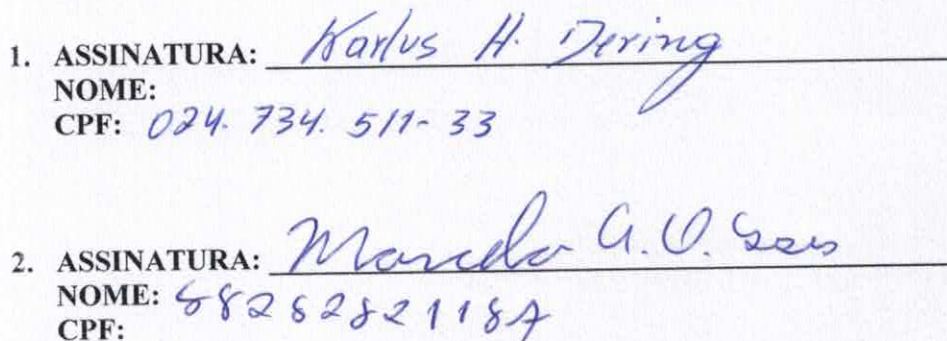 1. ASSINATURA: Karlus H. Dering
NOME:
CPF: 024.734.511-33
2. ASSINATURA: Marcelo G. O.
NOME:
CPF: